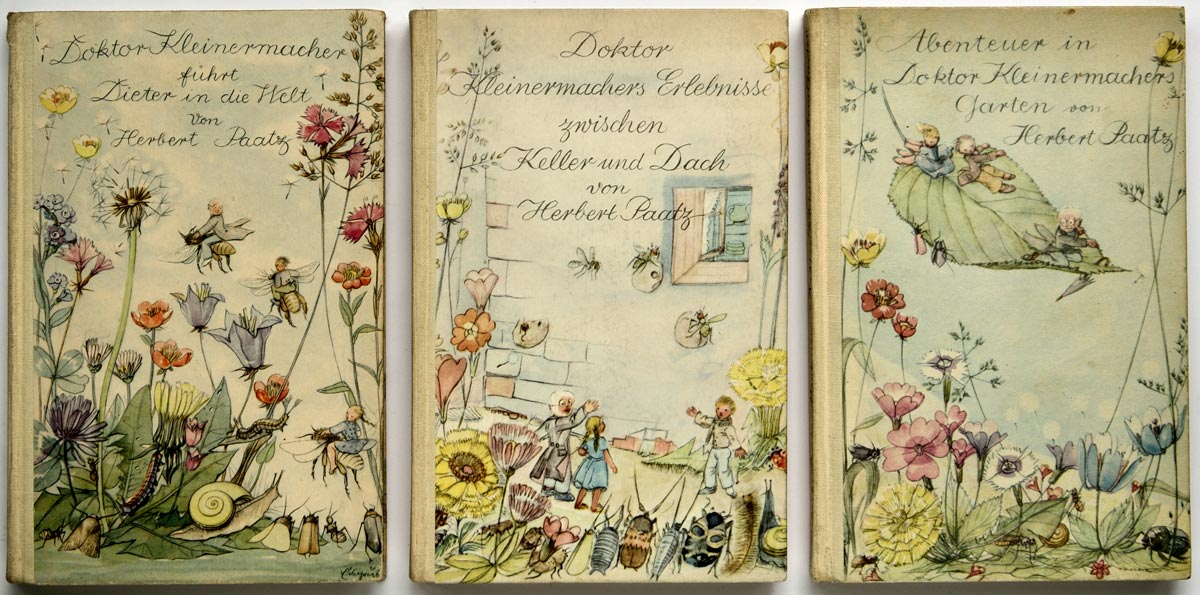 Doktor Kleinermacher
führt
Dieter in die Welt
von
Herbert Paatz
Doktor
Kleinermachers Erlebnisse
zwischen
Keller und Dach
von
Herbert Paatz
Abenteuer in
Doktor Kleinermachers
Garten von
Herbert Paatz